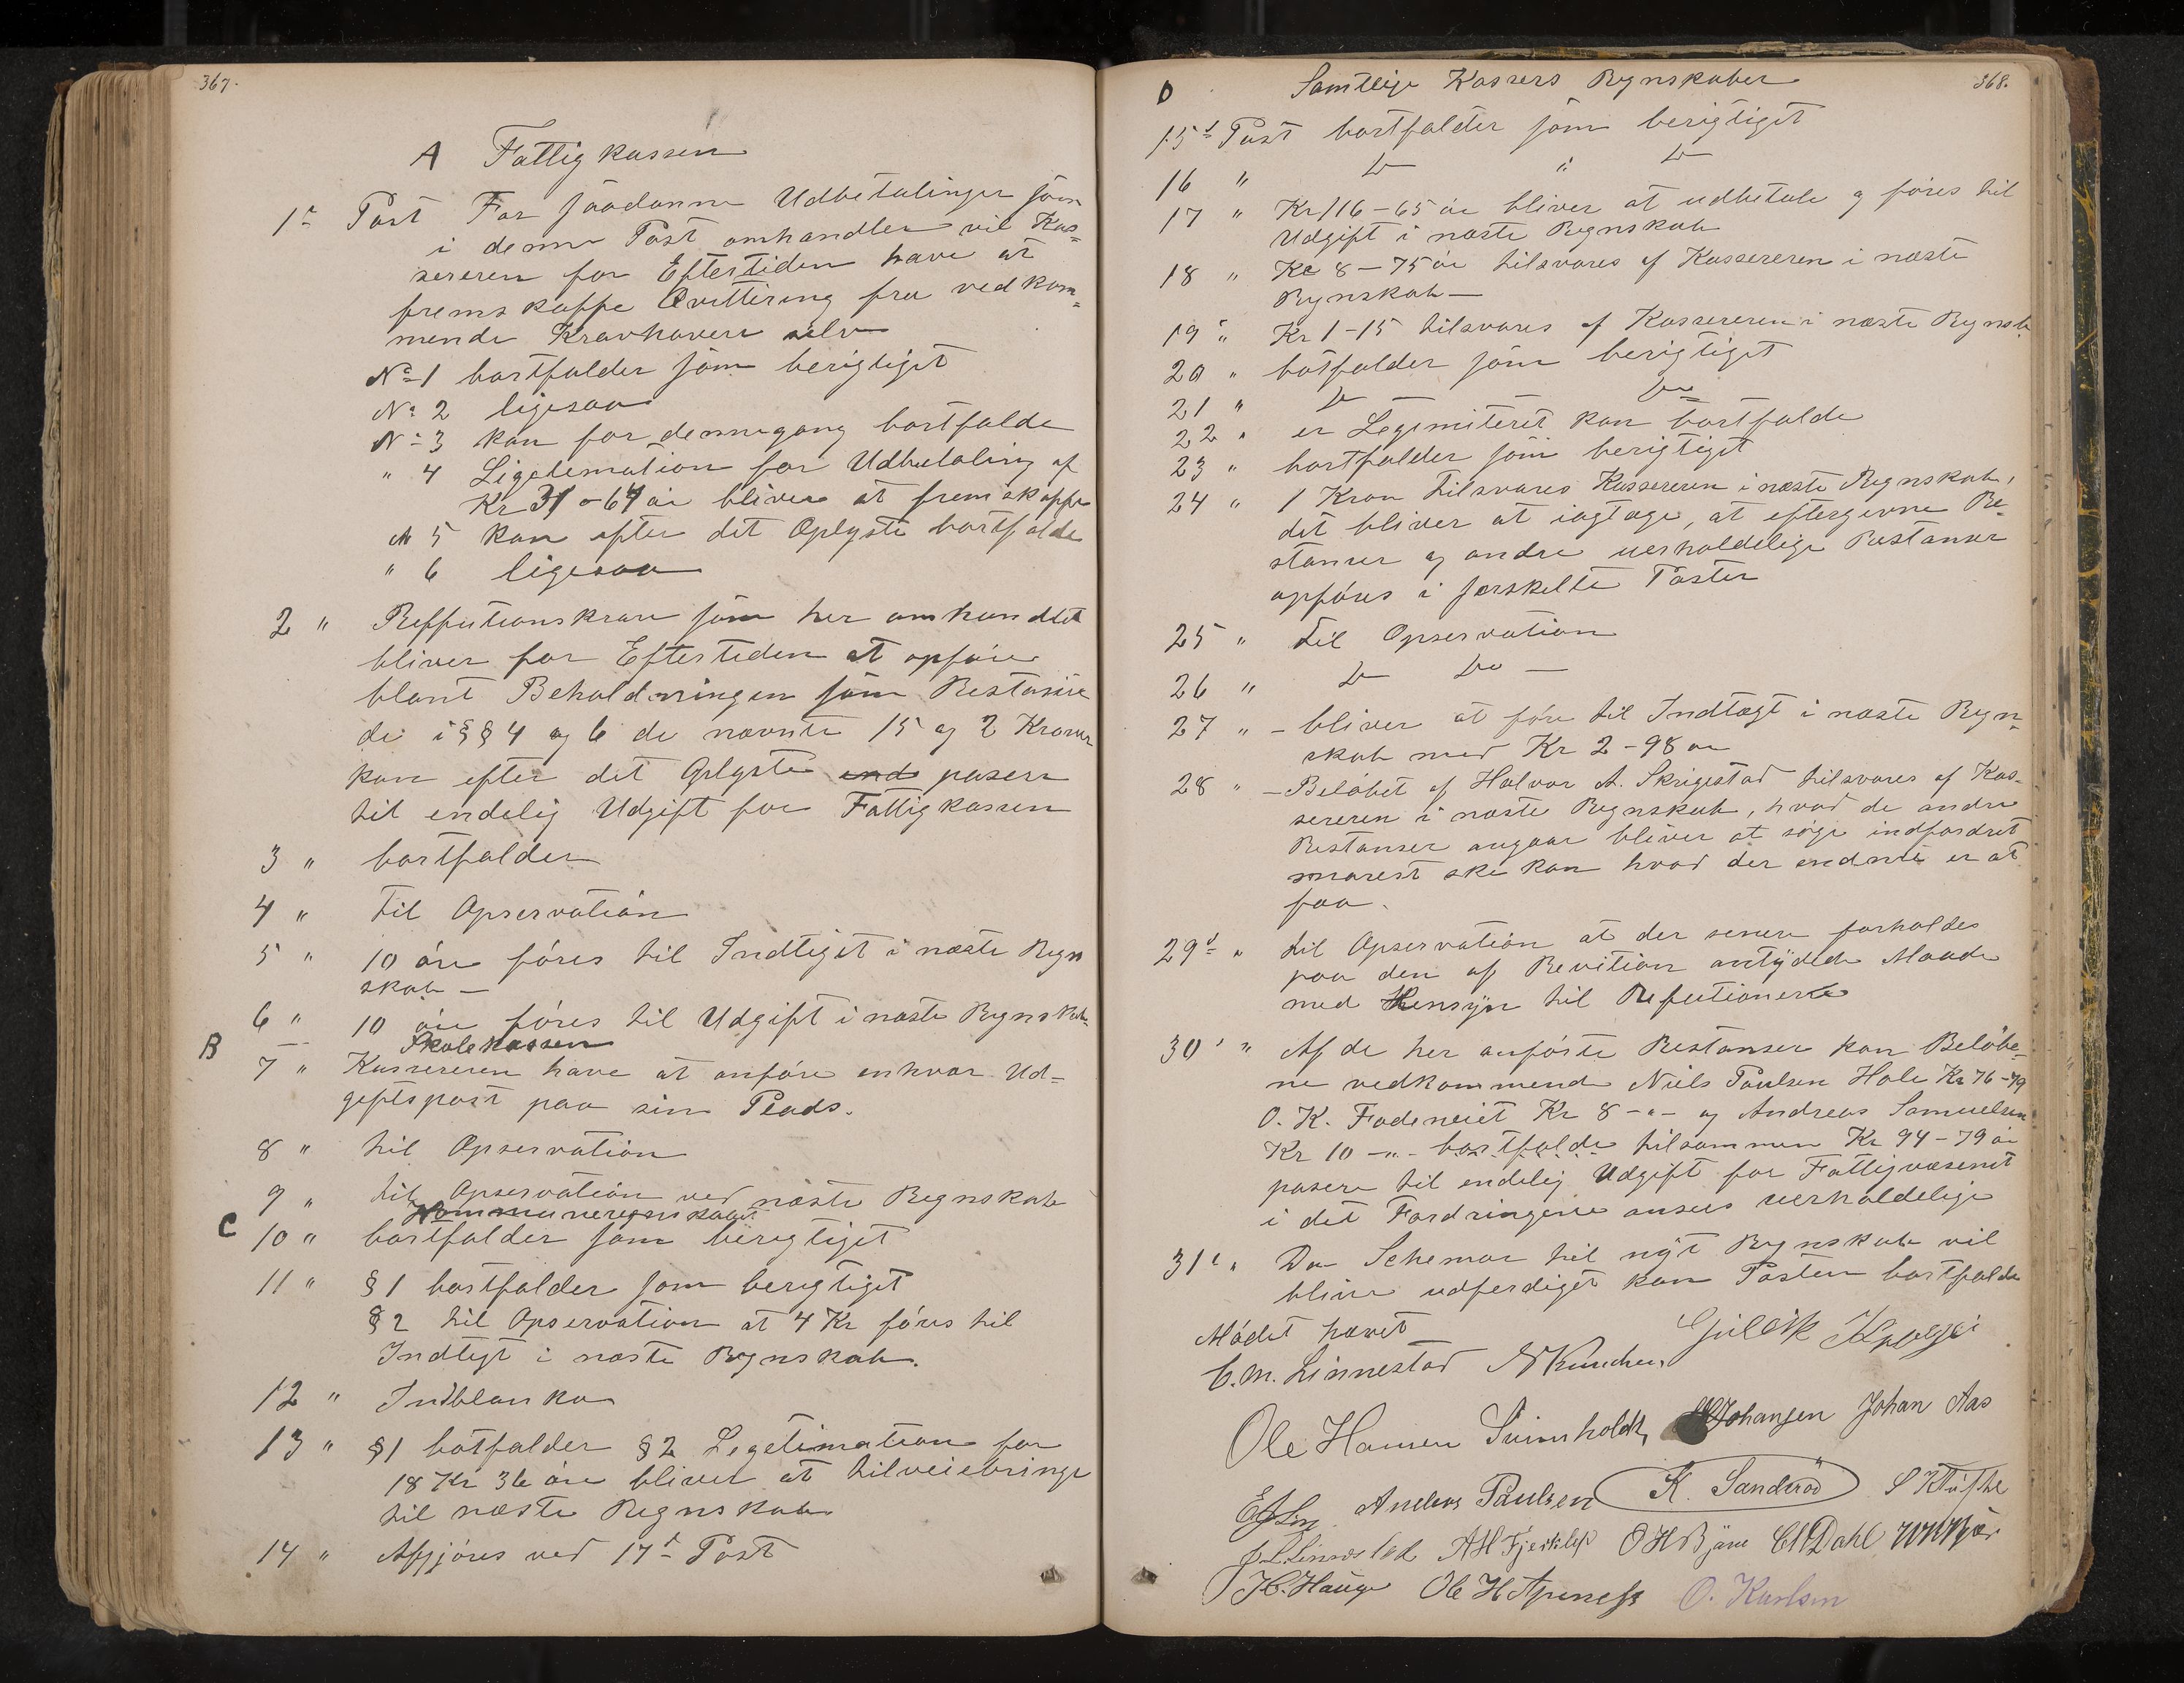 367.
A Fattigkassen
1ste Post For saadanne Udbetalinger som
i denne Post omhandler vil Kas-
sereren for Eftertiden have at
fremskaffe Qvittering fra vedkom-
mende Kravhavere selv
No 1 bortfalder som berigtiget
No 2 ligesaa
No 3 kan for dennegang bortfalde
" 4 Ligetimation for Udbetaling af
Kr 31-64 øre bliver at fremskaffe
N 5 kan efter det Oplyste bortfalde
" 6 ligesaa
2 " Reffutionskrav som her omhandlet
bliver for Eftertiden at opføre
blant Beholdningen som Restanse
de i §§ 4 og 6 de nævnte 15 og 2 Kroner
kan efter det Oplyste pasere
til endelig Udgift for Fattigkassen
3 " bortfalder
4 " til Opservation
5 " 10 øre føres til Indtiget i næste Regn
skab
6 " 10 øre føres til Udgift i næste Regnskab
B Skolekassen
7 " Kassereren have at anføre enhvor Ud-
giftspost paa sin Plads.
8 " til Opservation
9 " til Opservation ved næste Regnskab
C Kommuneregnskabet
10 " bortfalder som berigtiget
11 " § 1 bortfalder som berigtiget
§ 2 til Opservation at 4 Kr føres til
Indtegt i næste Regnskab.
12 " Indblanko
13 " § 1 botfalder § 2 Legetimation for
18 Kr 36 øre bliver at tilveiebringe
til næste Regnskab
14 " Afgjøres ved 17de Post
368.
D Samtlige Kassers Regnskaber
15de Post bortfalder som berigtiget
16 " Do " Do
17 " Kr 116-65 øre bliver at udbetale og føres til
Udgift i næste Regnskab
18 " Kr 8-75 øre tilsvares af Kassereren i næste
Regnskab
19 " Kr 1-15 tilsvares af Kassereren i næste Regnsk
20 " botfalder som berigtiget
21 " Do Do
22 " er Legimiteret kan bortfalde
23 " bortfalder som berigtiget
24 " 1 Kron tilsvares Kassereren i næste Regnskab,
det bliver at iagtage, at eftergivne Re-
stanser og andre uerholdelige Restanser
opføres i serskelte Poster
25 " til Opservation
26 " Do Do
27 " - bliver at føre til Indtægt i næste Regn-
skab med Kr 2-98 øre
28 " - Beløbet af Halvor A. Skrigestad tilsvares af Kas-
sereren i næste Regnskab, hvad de andre
Restanser angaar bliver at søge indfordret
snarest ske kan hvad der endnu er at
faa.
29de " til Opservation at der senere forholdes
paa den af Revition antydede Maade
med Hensyn til Refutionerne
30 " Af de her anførte Restanser kan Beløbe-
ne vedkommende Niels Paulsen Hole Kr 76-79
O. K. Fodeneiet Kr 8-"- og Andreas Samuelsen
Kr 10-"- bortfalde tilsammen Kr 94-79 øre
pasere til endelig Udgift for Fattigvæsenet
i det Fordringerne ansees uerholdelige
31te " Da Schemar til nyt Regnskab vil
blive udferdiget kan Posten bortfalde
Mødet hævet
C. M. Linnestad N Knudsen Gulbik
Ole Hansen Johansen Johan Aas
Anders Paulsen K. Sanderød
J L Linnestad O H Bjäre Dahl
H. Hauge Ole H O. Karlsen